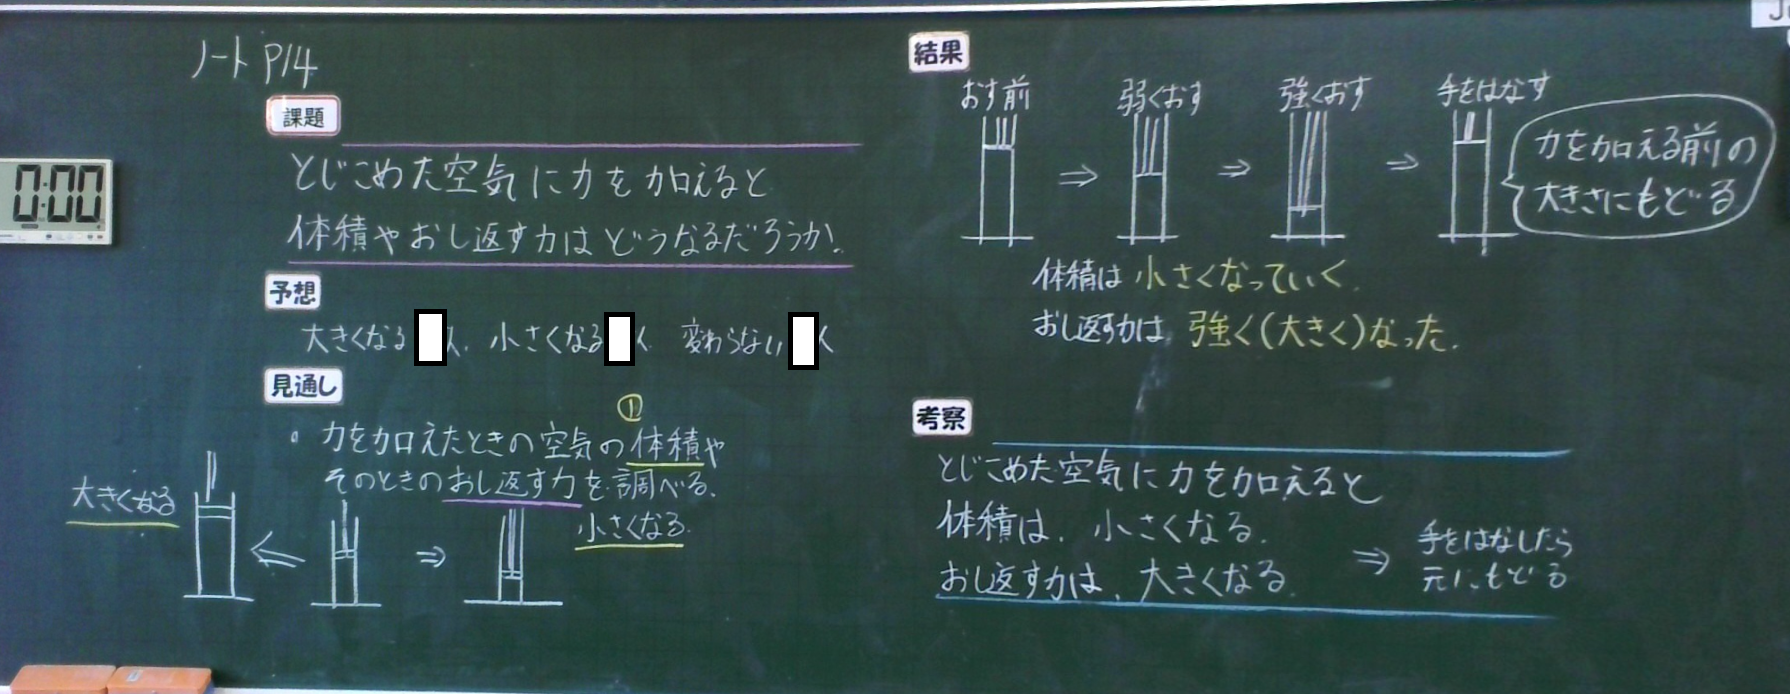 ノート P14
課題
とじこめた空気に力を加えると
体積やおし返す力はどうなるだろうか。
予想
大きくなる 人、小さくなる 人 変わらない 人
見通し
①
・力を加えたときの空気の体積や
そのときのおし返す力を調べる。
大きくなる
小さくなる
0:00
結果
おす前 弱くおす 強くおす 手をはなす
⇒ ⇒ ⇒
力を加える前の
大きさにもどる
体積は 小さくなっていく。
おし返す力は 強く(大きく)なった。
考察
とじこめた空気に力を加えると
体積は、小さくなる。
おし返す力は、大きくなる。
⇒ 手をはなしたら
元にもどる